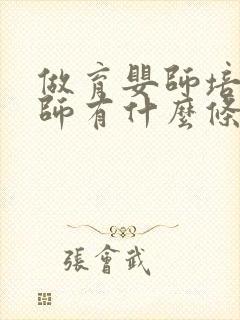 做育嬰師培
師有什麼條
張會武